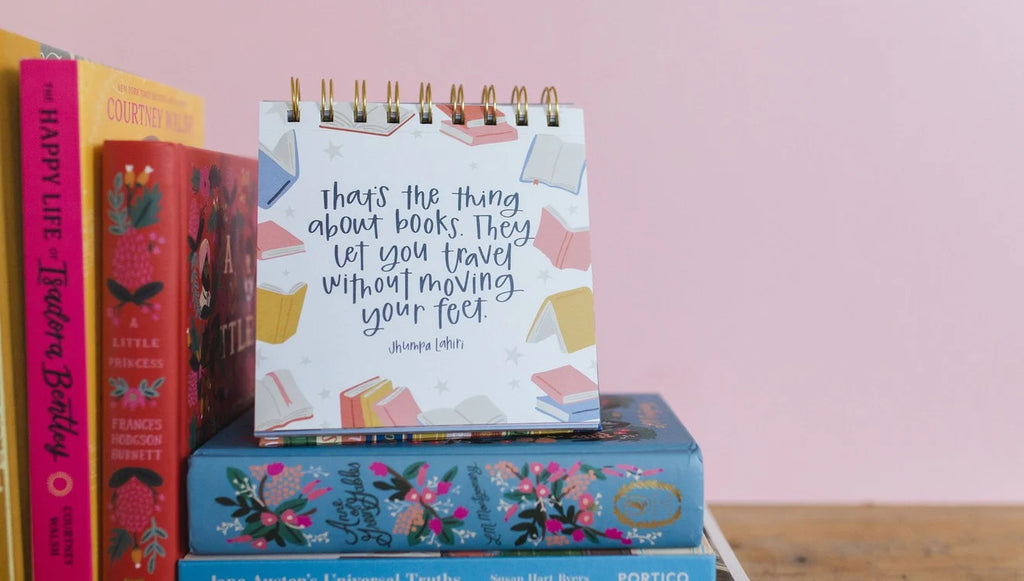 THE HAPPY LIFE OF Isadora Bentley
COURTNEY WALSH
NEW YORK TIMES
COURTNEY WALSH
A
LITTLE
PRINCESS
FRANCES
HODGSON
BURNETT
A
That's the thing
about books. They
let you travel
without moving
your feet.
Jhumpa Lahiri
Anne of
Green Gables
L.M. Montgomery
Jane Austen's Universal Truths Susan Hart-Byers PORTICO